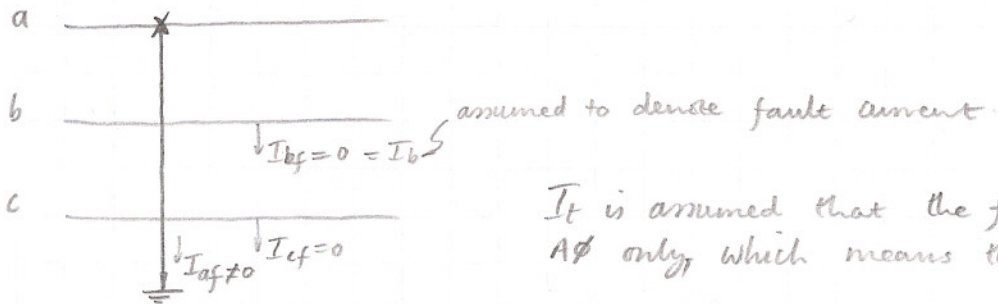 a
b
assumed to denote fault current
I_bf = 0 = I_b
c
I_af ≠ 0
I_cf = 0
It is assumed that the
AØ only, which means